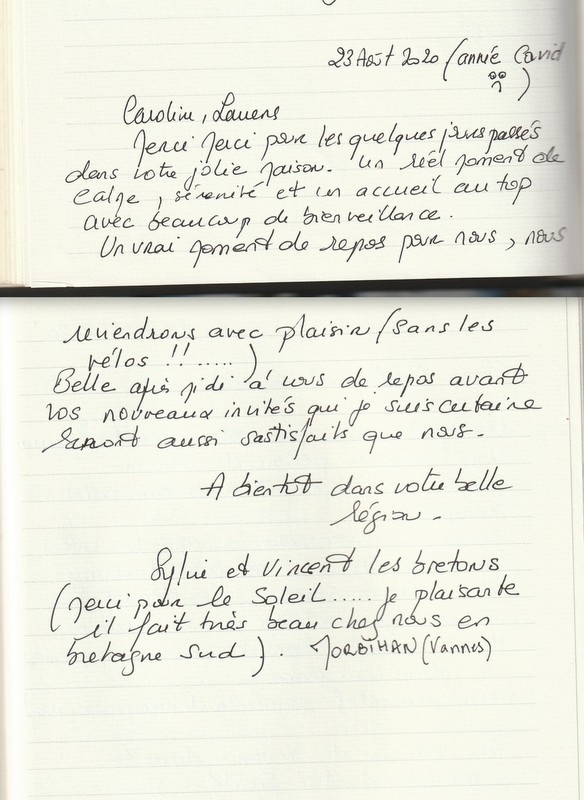 23 Août 2020 (année Covid
)
Caroline, Laurens
Merci Merci pour les quelques jours passés
dans votre jolie maison. Un réel moment de
calme, sérénité et un accueil au top
avec beaucoup de bienveillance.
Un vrai moment de repos pour nous, nous
reviendrons avec plaisir (sans les
vélos !! .....)
Belle après midi à vous de repos avant
vos nouveaux invités qui je suis certaine
seront aussi sastisfaits que nous.
A bientôt dans votre belle
région.
Sylvie et Vincent les bretons
(Merci pour le soleil..... je plaisante
il fait très beau chez nous en
bretagne sud). MORBIHAN (Vannes)